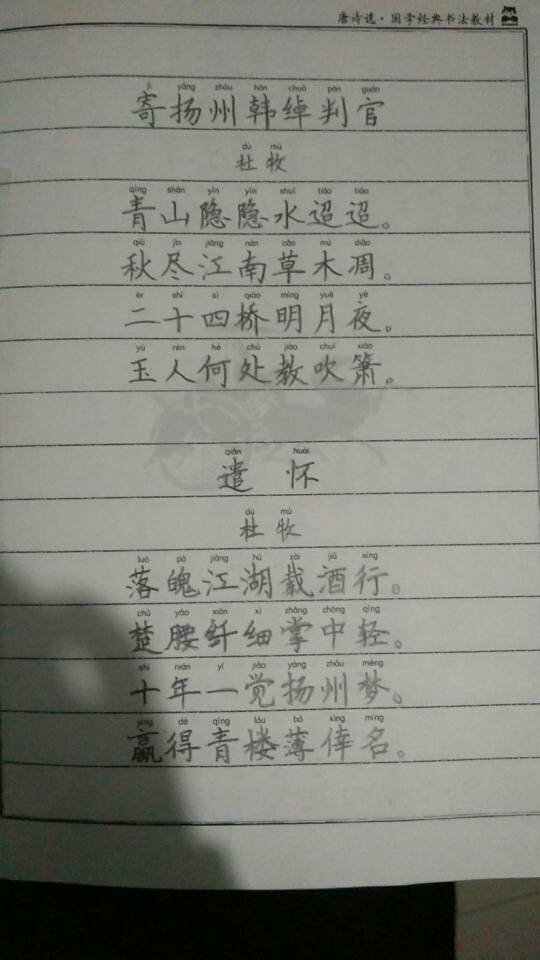 唐诗选·国学经典书法教材
jì yáng zhōu hán chuò pàn guān
寄扬州韩绰判官
dù mù
杜牧
qīng shān yǐn yǐn shuǐ tiáo tiáo
青山隐隐水迢迢。
qiū jìn jiāng nán cǎo mù diāo
秋尽江南草木凋。
èr shí sì qiáo míng yuè yè
二十四桥明月夜。
yù rén hé chù jiāo chuī xiāo
玉人何处教吹箫。
qiǎn huái
遣怀
dù mù
杜牧
luò pò jiāng hú zài jiǔ xíng
落魄江湖载酒行。
chǔ yāo xiān xì zhǎng zhōng qīng
楚腰纤细掌中轻。
shí nián yī jiào yáng zhōu mèng
十年一觉扬州梦。
yíng dé qīng lóu bó xìng míng
赢得青楼薄倖名。